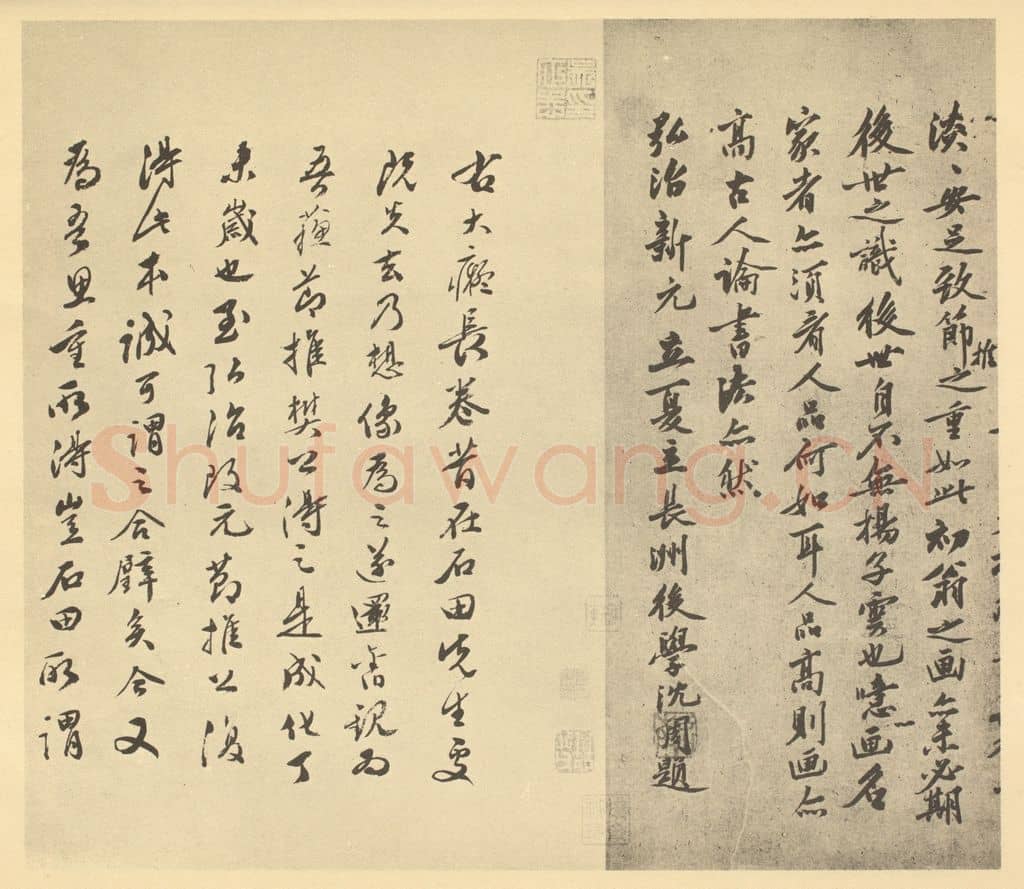 淡〻安足致節推之重如此初翁之画亦未必期
後世之識後世自不無揚子雲也噫画名
家者亦須看人品何如耳人品高則画亦
高古人論書法亦然
弘治新元立夏長洲後學沈周題
右大癡長卷昔在石田先生處
既失去乃想像為之遂還舊觀為
吾蘇節推樊公得之是成化丁
未歲也至弘治改元節推公復
得此本誠可謂之合璧矣今又
為吾思重所得豈石田所謂
Shufawang.CN